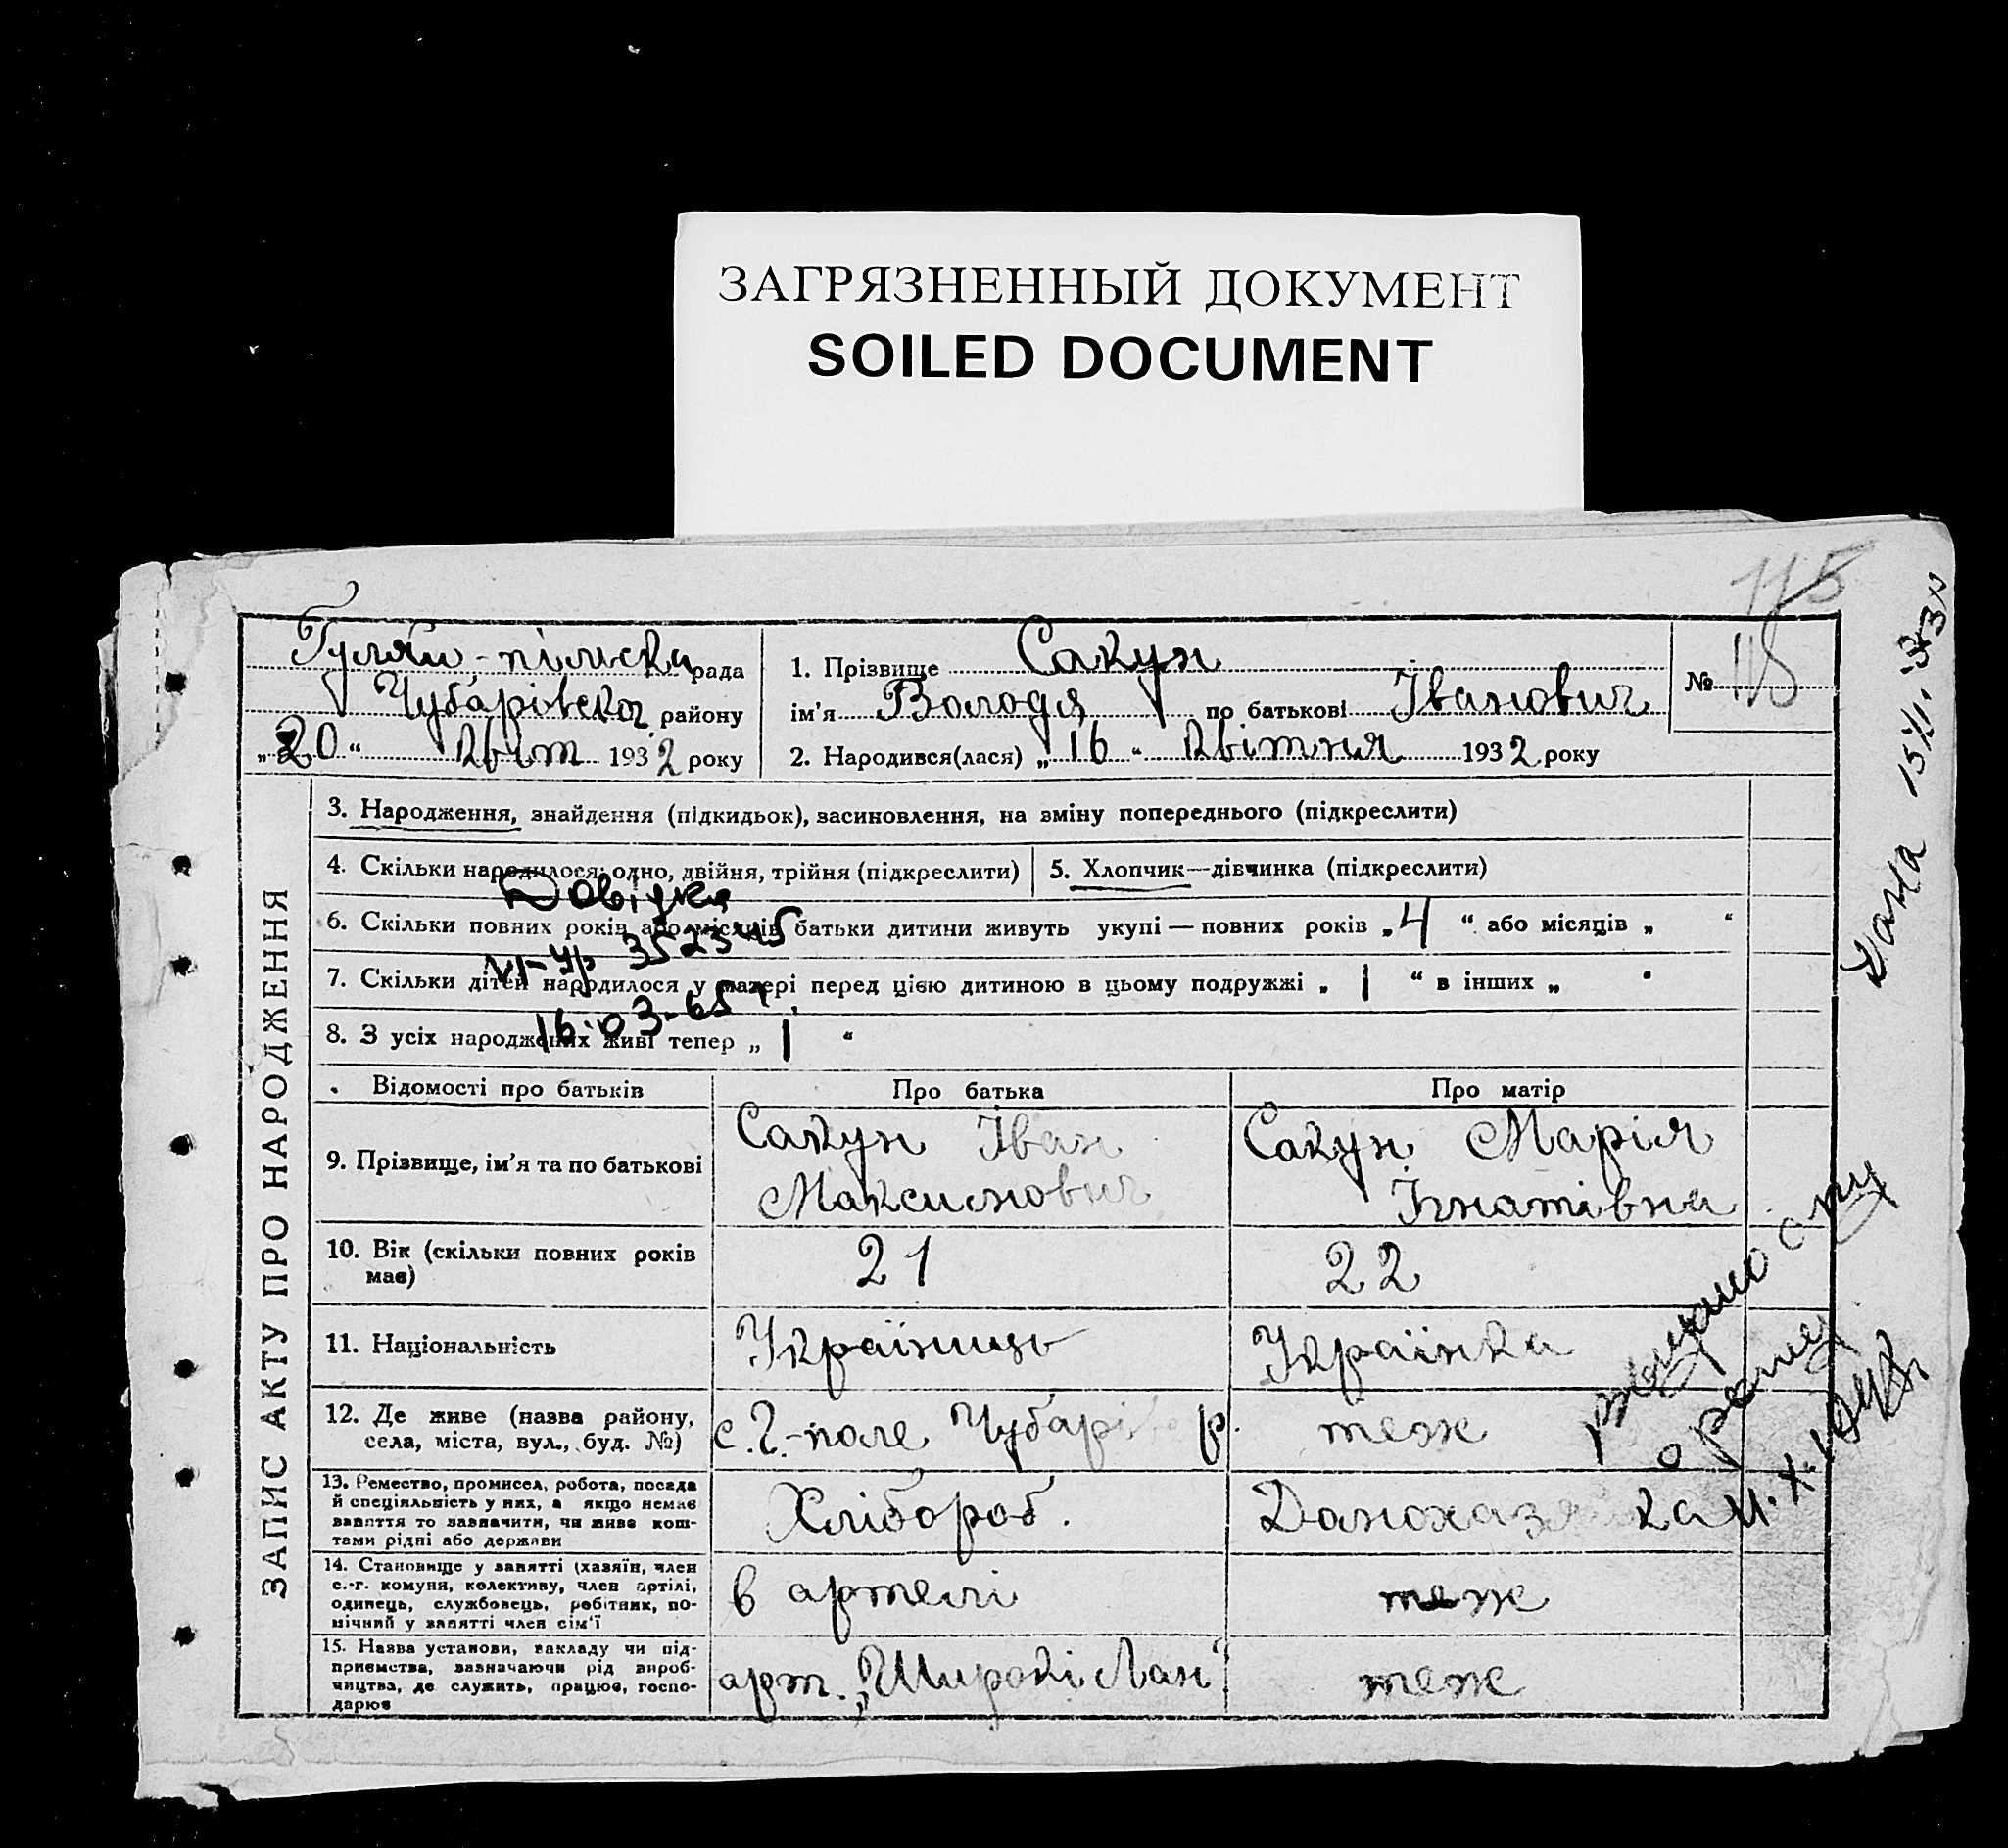 ЗАГРЯЗНЕННЫЙ ДОКУМЕНТ
SOILED DOCUMENT
115
Гуляй-пільська рада
Чубарівског району
„20“ квіт 1932 року
1. Прізвище Сакун
ім'я Володя по батькові Іванович
2. Народився(лася) „16“ квітня 1932 року
№ 115
ЗАПИС АКТУ ПРО НАРОДЖЕННЯ
3. Народження, знайдення (підкидьок), засиновлення, на зміну попереднього (підкреслити)
4. Скільки народилося: одно, двійня, трійня (підкреслити)
5. Хлопчик—дівчинка (підкреслити)
Довідка
6. Скільки повних років або місяців батьки дитини живуть укупі — повних років „4“ або місяців „ “
352345
7. Скільки дітей народилося у матері перед цією дитиною в цьому подружжі „1“ в інших „ “
16.03-65
8. З усіх народжених живі тепер „1“
Відомості про батьків
Про батька
Про матір
9. Прізвище, ім'я та по батькові
Сакун Іван
Максимович
Сакун Марія
Ігнатівна
10. Вік (скільки повних років
має)
21
22
11. Національність
Українець
Українка
12. Де живе (назва району,
села, міста, вул., буд. №)
с. Г.-поле Чубарів р.
теж
13. Ремество, промисел, робота, посада
й спеціяльність у них, а якщо немає
заняття то зазначити, чи живе кош-
тами рідні або держави
Хлібороб.
Домохазяйка
14. Становище у занятті (хазяїн, член
с.-г. комуни, колективу, член артілі,
одинець, службовець, робітник, по-
мічний у занятті член сім'ї
в артелі
теж
15. Назва установи, закладу чи під-
приємства, зазначаючи рід вироб-
ництва, де служить, працює, госпо-
дарює
арт. „Широкі Лан“
теж